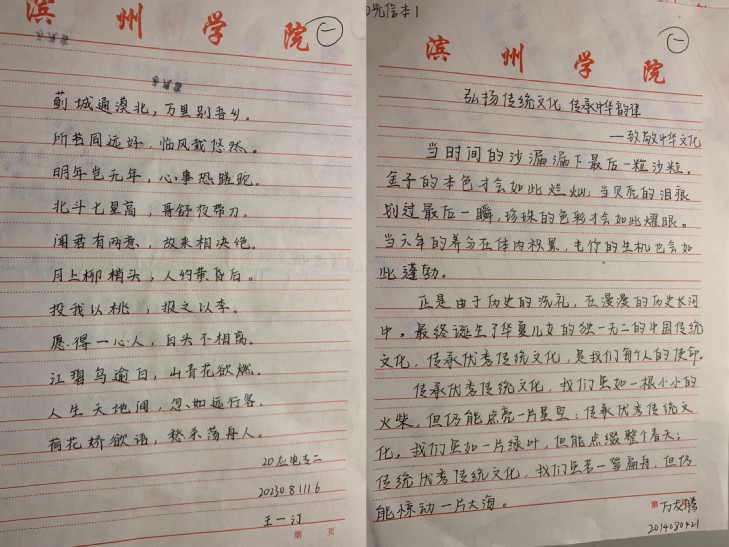 滨州学院
一
蓟城通漠北，万里别吾乡。
所若同远好，临风载悠然。
明年岂无年，心事恐蹉跎。
北斗七星高，哥舒夜带刀。
闻君有两意，故来相决绝。
月上柳梢头，人约黄昏后。
投我以桃，报之以李。
愿得一心人，白头不相离。
江碧鸟逾白，山青花欲燃。
人生天地间，忽如远行客。
荷花娇欲语，愁杀荡舟人。
20应电专二
202308 1116
王一汀
第 页
20光信本1
滨州学院
一
弘扬传统文化 传承中华韵律
——致敬中华文化
当时间的沙漏漏下最后一粒沙粒，
金子的本色才会如此灿灿，当贝壳的泪痕
划过最后一瞬，珍珠的色彩才会如此耀眼。
当六年的养分在体内积累，毛竹的生机也会如
此蓬勃。
正是由于历史的洗礼，在漫漫的历史长河
中，最终诞生了华夏儿女的独一无二的中国传统
文化，传承优秀传统文化，是我们每个人的使命。
传承优秀传统文化，我们虽如一根小小的
火柴，但仍能点亮一片星空；传承优秀传统文
化，我们虽如一片绿叶，但能点缀整个春天；
传统优秀传统文化，我们虽若一叶扁舟，但仍
能惊动一片大海。
第
万友腾
2014080421